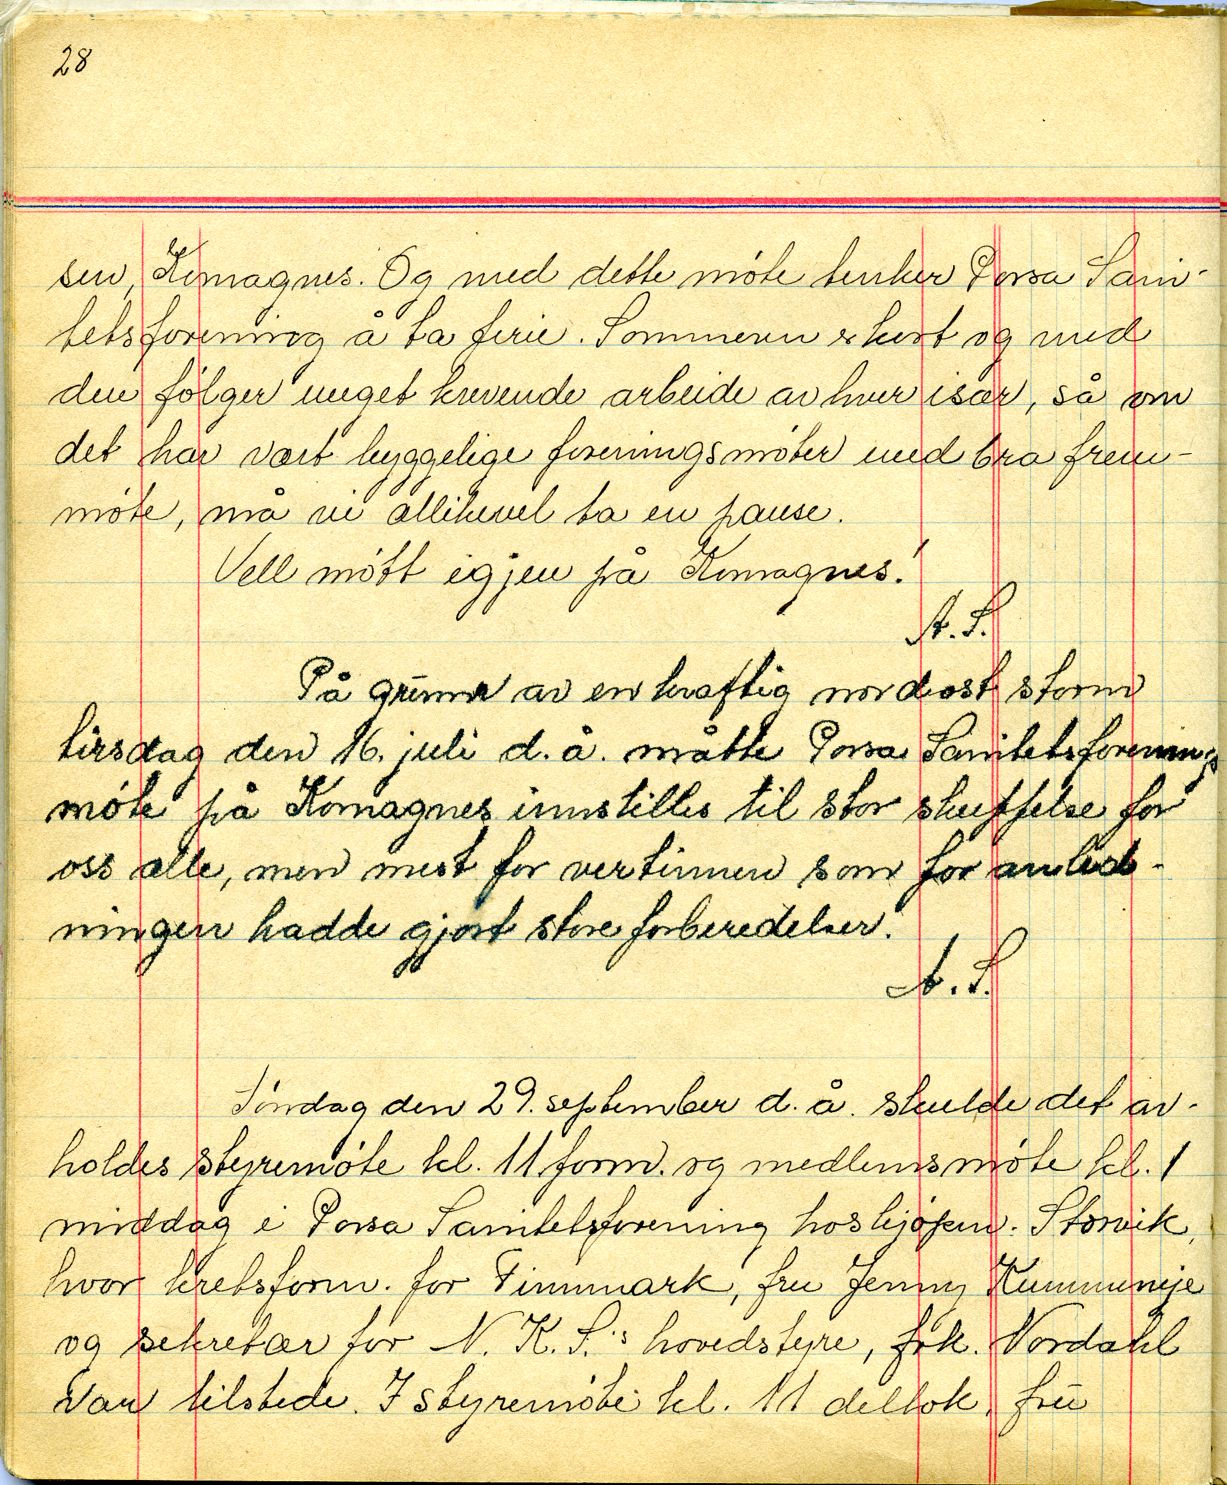 28
sen, Komagnes. Og med dette møte tenker Porsa Sani-
tetsforening å ta ferie. Sommeren er kort og med
den følger meget krevende arbeide av hver især, så om
det har vært hyggelige foreningsmøter med bra frem-
møte, må vi allikevel ta en pause.
Vell møtt igjen på Komagnes!
A. S.
På grunn av en kraftig nordost storm
tirsdag den 16. juli d. å. måtte Porsa Sanitetsforenings
møte på Komagnes innstilles til stor skuffelse for
oss alle, men mest for vertinnen som for anled-
ningen hadde gjort store forberedelser.
A. S.
Søndag den 29. september d. å. skulde det av-
holdes styremøte kl. 11 form. og medlemsmøte kl. 1
middag i Porsa Sanitetsforening hos kjøpm. Storvik,
hvor kretsform. for Finnmark, fru Jenny
og sekretær for N. K. S.'s hovedstyre, frk. Nordahl
var tilstede. I styremøte kl. 11 deltok, fru